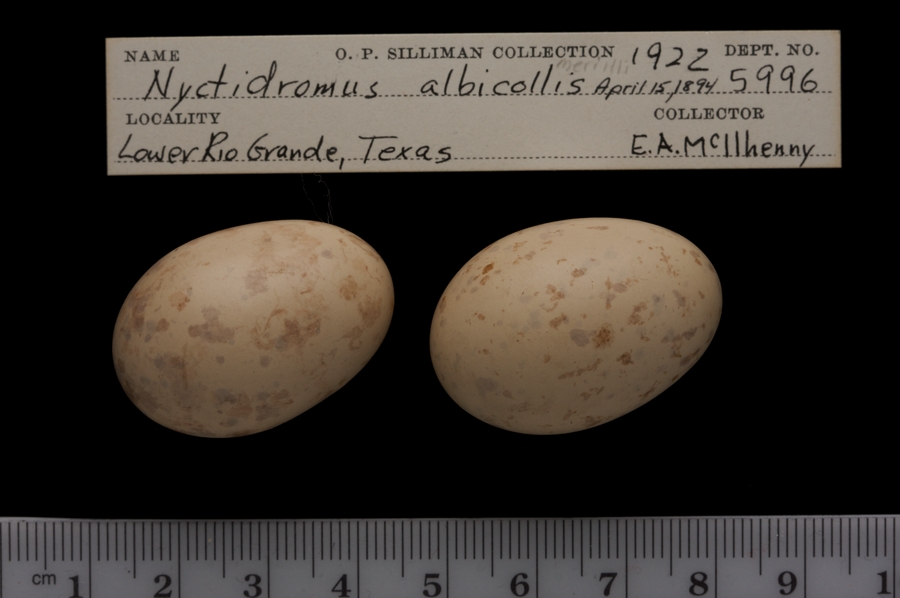 NAME O. P. SILLIMAN COLLECTION 1922 DEPT. NO.
merrilli
Nyctidromus albicollis April 15, 1894 5996
LOCALITY COLLECTOR
Lower Rio Grande, Texas E.A. McIlhenny
cm 1 2 3 4 5 6 7 8 9 1